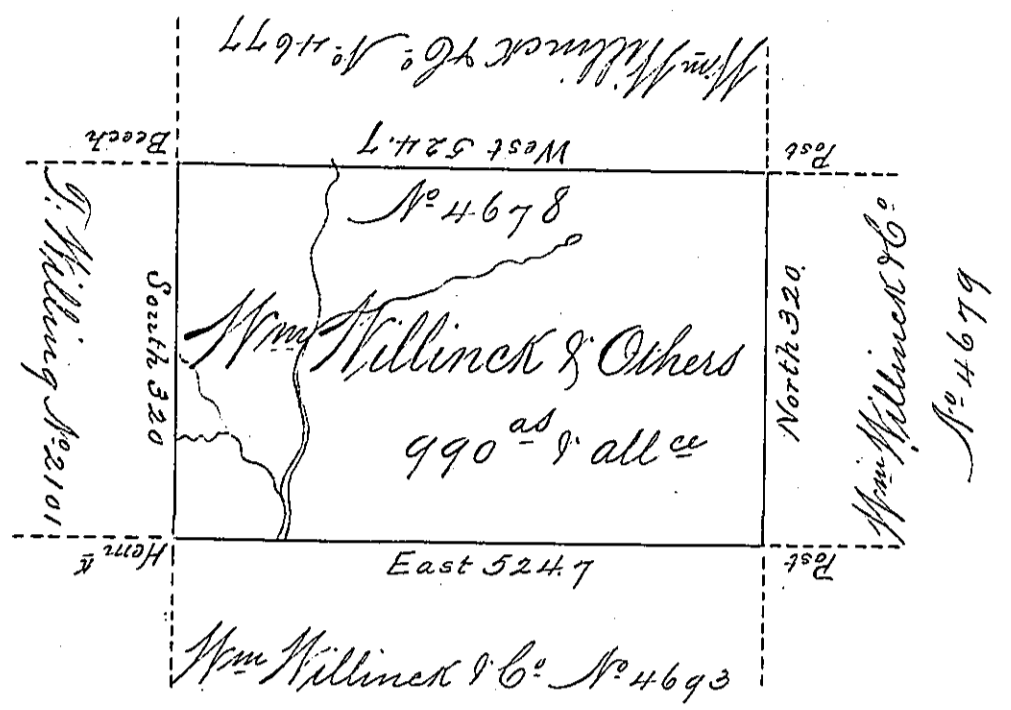 Wm Willinck & Co. No. 4677
Beech
West 524.7
Post
No 4678
T. Willing No 2101
South 320
Wm Willinck & Others
990 as & allce
North 320.
Wm Willinck & Co.
No 4679
Hemk
East 524.7
Post
Wm Willinck & Co. No 4693